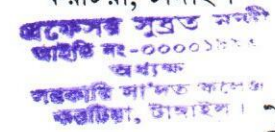 প্রফেসর সুব্রত নন্দী
আইডি নং-00001
অধ্যক্ষ
সরকারি সা'দত কলেজ
করটিয়া, টাঙ্গাইল।